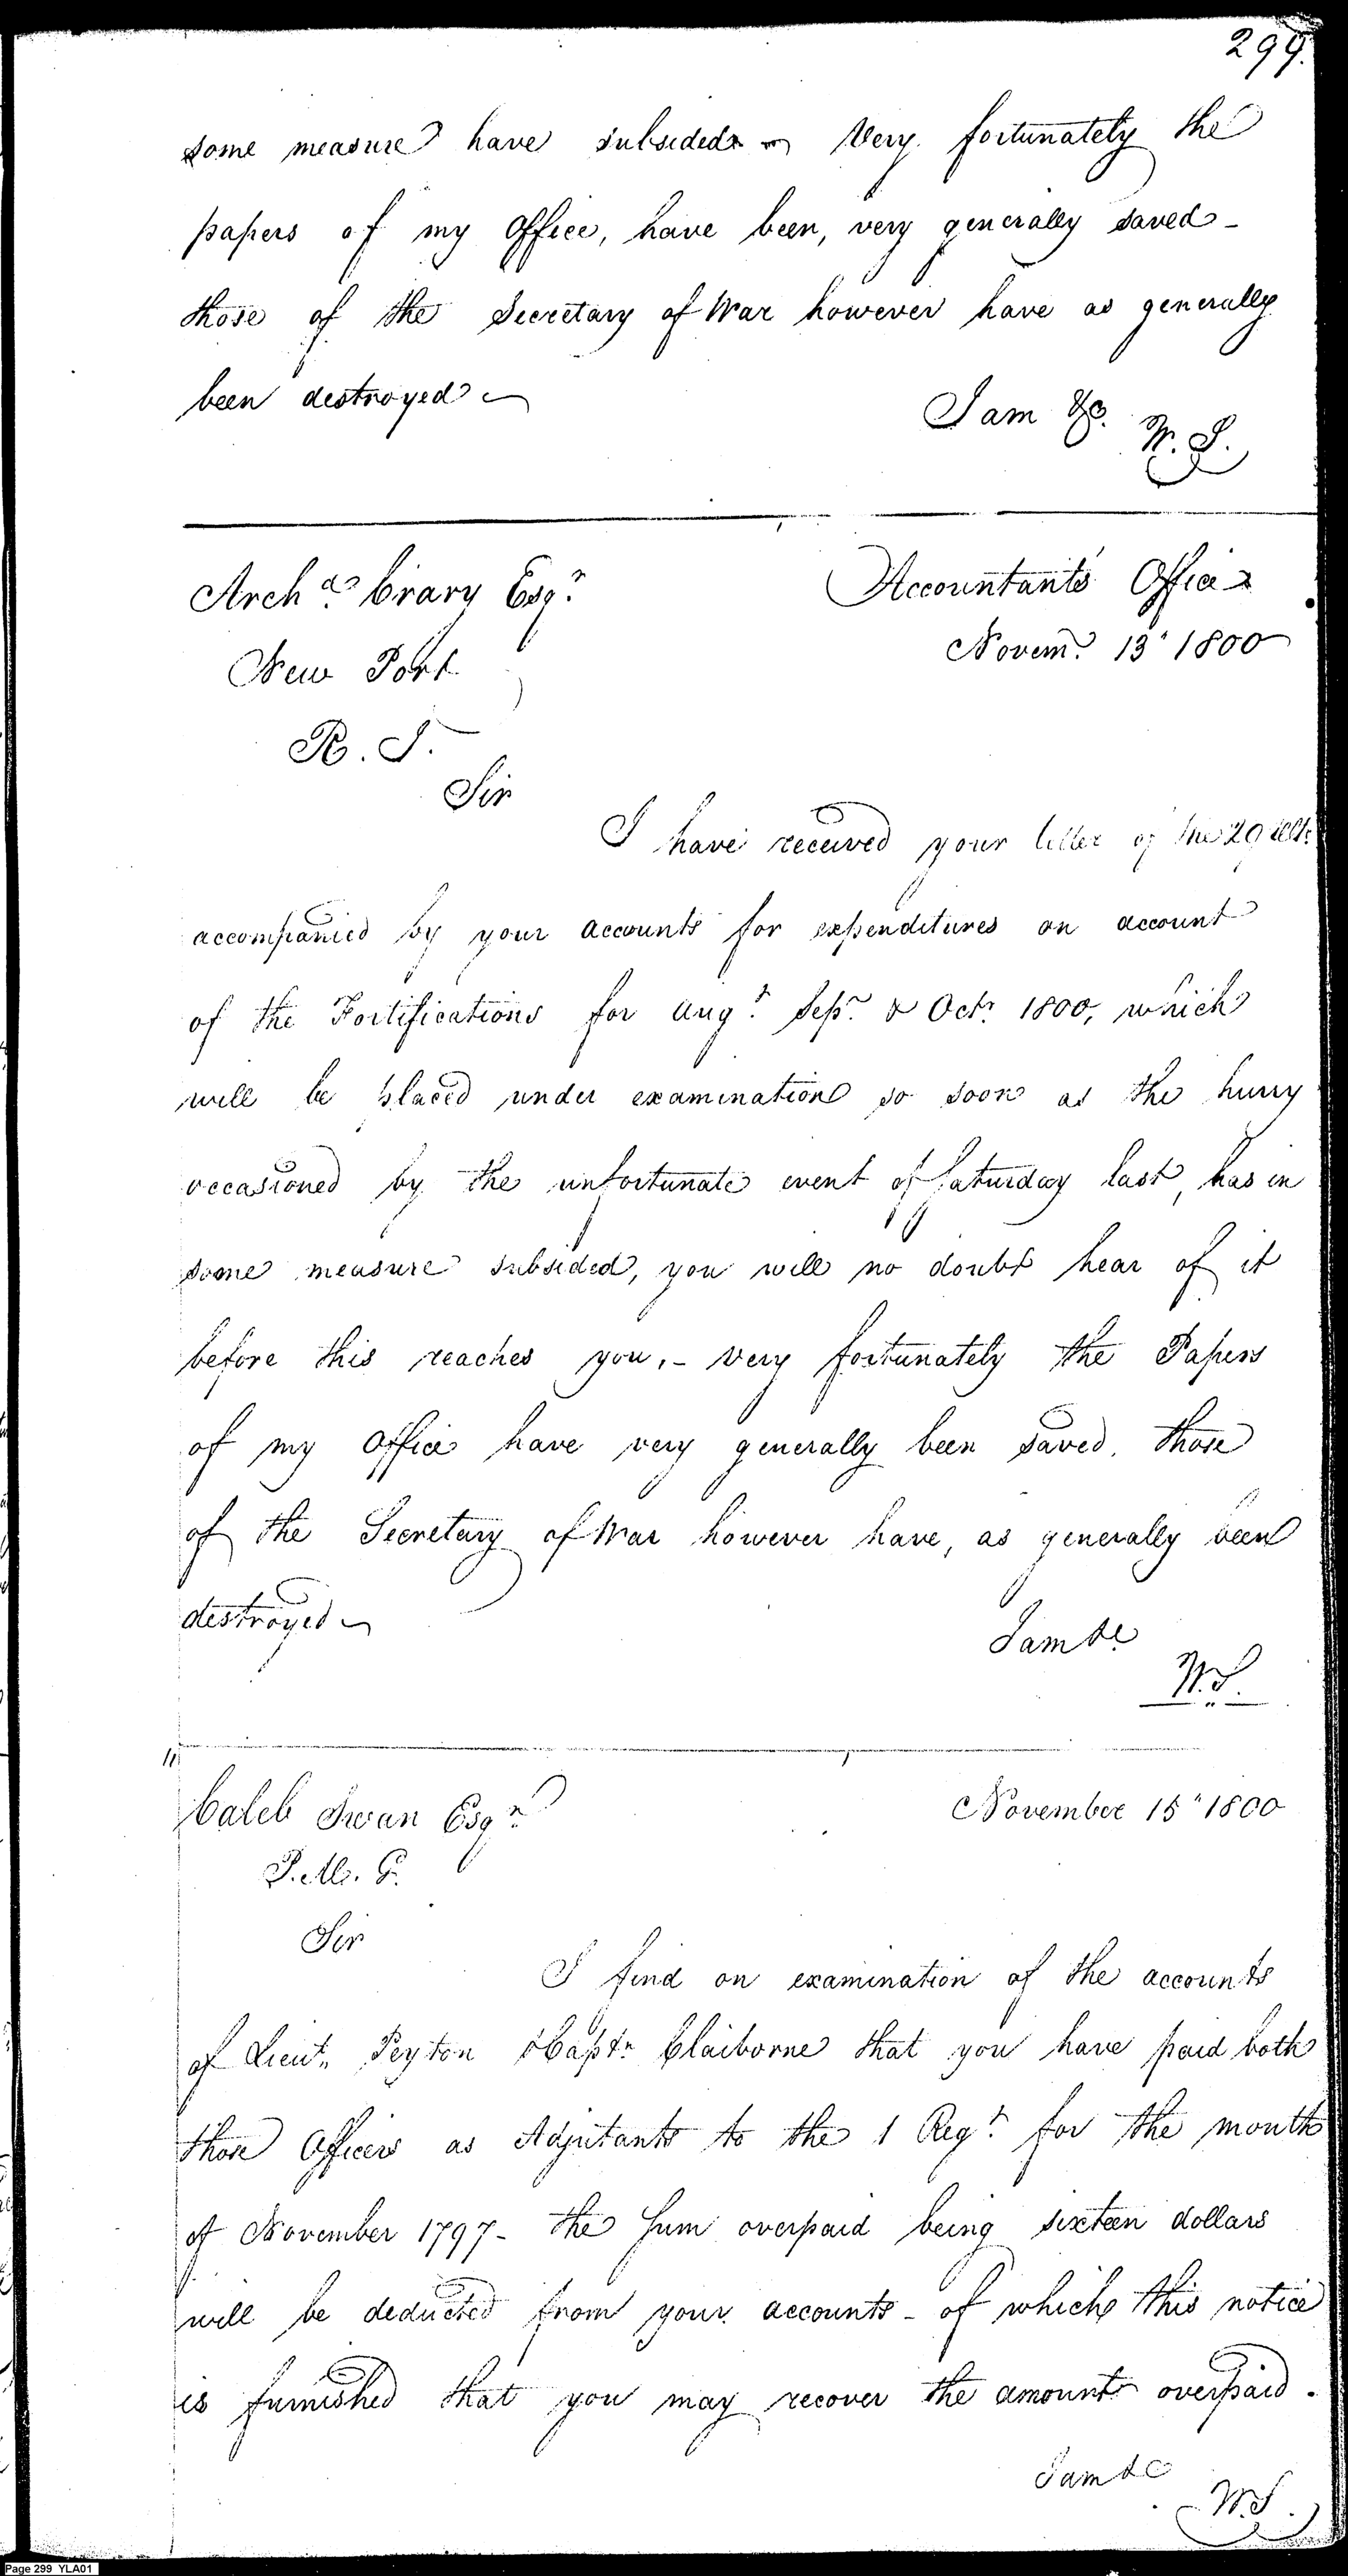 299.
some measure have subsided - Very fortunately the
papers of my Office, have been, very generally saved -
those of the Secretary of War however have as generally
been destroyed -
I am &c.
W. S.
Archd. Crary Esqr.
Accountants Office
New Port
Novemr. 13" 1800
R. I.
Sir
I have received your letter of the 29 Ulto.
accompanied by your accounts for expenditures on account
of the Fortifications for Augt. Sepr. & Octr. 1800, which
will be placed under examination so soon as the hurry
occasioned by the unfortunate event of Saturday last, has in
some measure subsided, you will no doubt hear of it
before this reaches you, - very fortunately the Papers
of my Office have very generally been saved. those
of the Secretary of War however have, as generally been
destroyed -
I am &c
W. S.
Caleb Swan Esqr.
November 15" 1800
P. M. G.
Sir
I find on examination of the accounts
of Lieut. Peyton & Captn. Claiborne that you have paid both
those Officers as Adjutants to the 1 Regt. for the month
of November 1797 - the Sum overpaid being sixteen dollars
will be deducted from your accounts - of which this notice
is furnished that you may recover the amount overpaid.
I am &c
W. S.
Page 299 YLA01